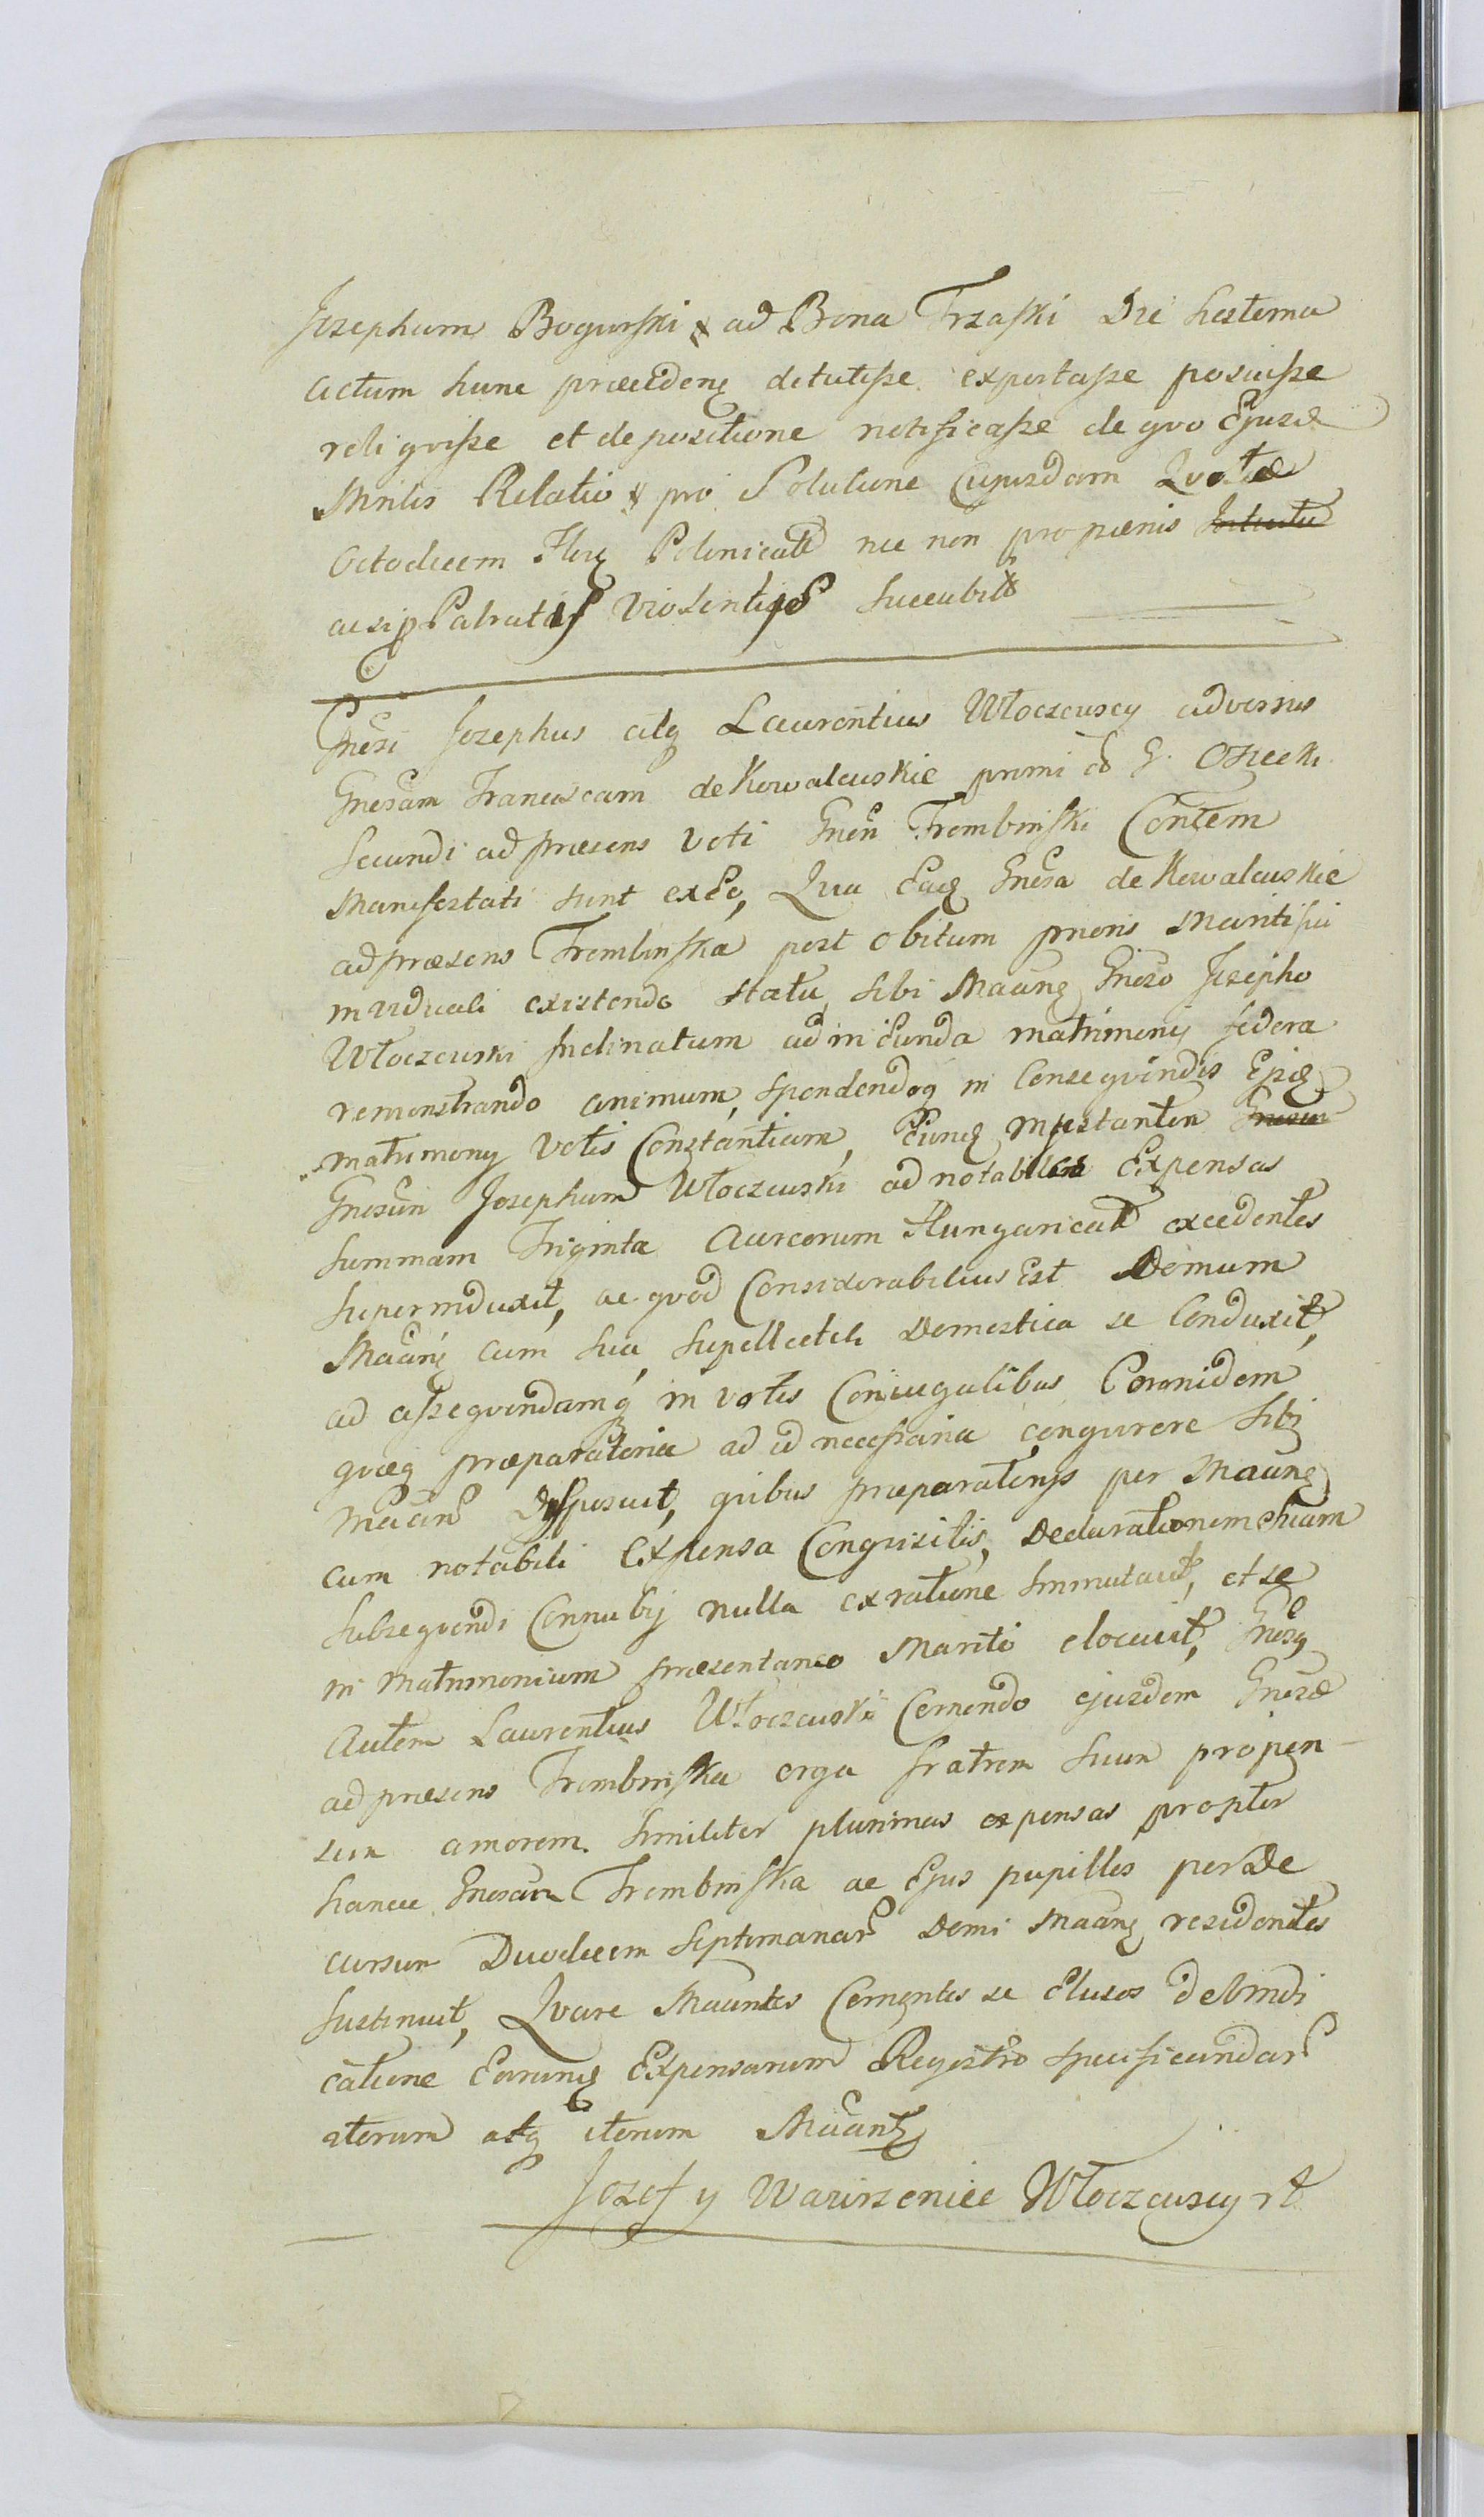 Josephum Bogurski & ad Bona Trzaski Die hesterna
actum hunc præceden detulisse exportasse posuisse
religvisse et depositione notificasse de qvo Ejusd
Mnlis Relatio & pro Solutione Cujusdam Qvotæ
Octodecem Flor Polonicalt nec non pro pænis
ac si Patratis Violentijs succubit
Gnesi Josephus atq Laurentius Włoczewscy adversus
Gnesam Franciscam de Kowalewskie primi G. Osiecki
secundi ad præsens Voti Gnen Trembinski Contem
Manifestati sunt ex Eo, Qvia Ead Gnesa de Kowalewskie
ad præsens Trembinska post obitum prioris Mariti sui
in viduali existendo statu, sibi Maang Gneso Josepho
Włoczewski Inclinatum ad ineunda matrimonij fædera
remonstrando animum, spondendoq in Conseqvendis Ejsd
matrimony Votis Constantiam, Eund Mstantem
Gnesun Josephum Włoczewski ad notabiles Expensas
summam Triginta Aureorum Hungaricalt excedentes
superinduxit, ac qvod Considerabilius Est Domum
Maang cum sua supellectili Domestica se Conduxit,
ad asseqvendamq in Votis Coniugalibus Coronidem
qvæq præparatoria ad id necessaria congvirere sibi
Maan Disposuit, qvibus præparatorijs per Maang
cum notabili Expensa Conqvisitis, Declarationem suam
subseqvendi Connubij nulla ex ratione Immutavit, et se
in Matrimonium præsentaneo Marito elocavit, Gnesq
Autem Laurentius Włoczewski Cernendo ejusdem Gnesæ
ad præsens Trembinska erga fratrem suun propen-
sun amorem. similiter plurimas expensas propter
hance Gnesam Trembinska ac Ejus pupillos per De
cursun Duodecem septimanar Domi Maang residentes
sustinuit, Qvare Maantes Cernentes se Elusos de Vindi
catione Earund Expensarum Registro specificandar
iterum atq iterum Maant
Jozef y Wawrzeniec Włoczewscy